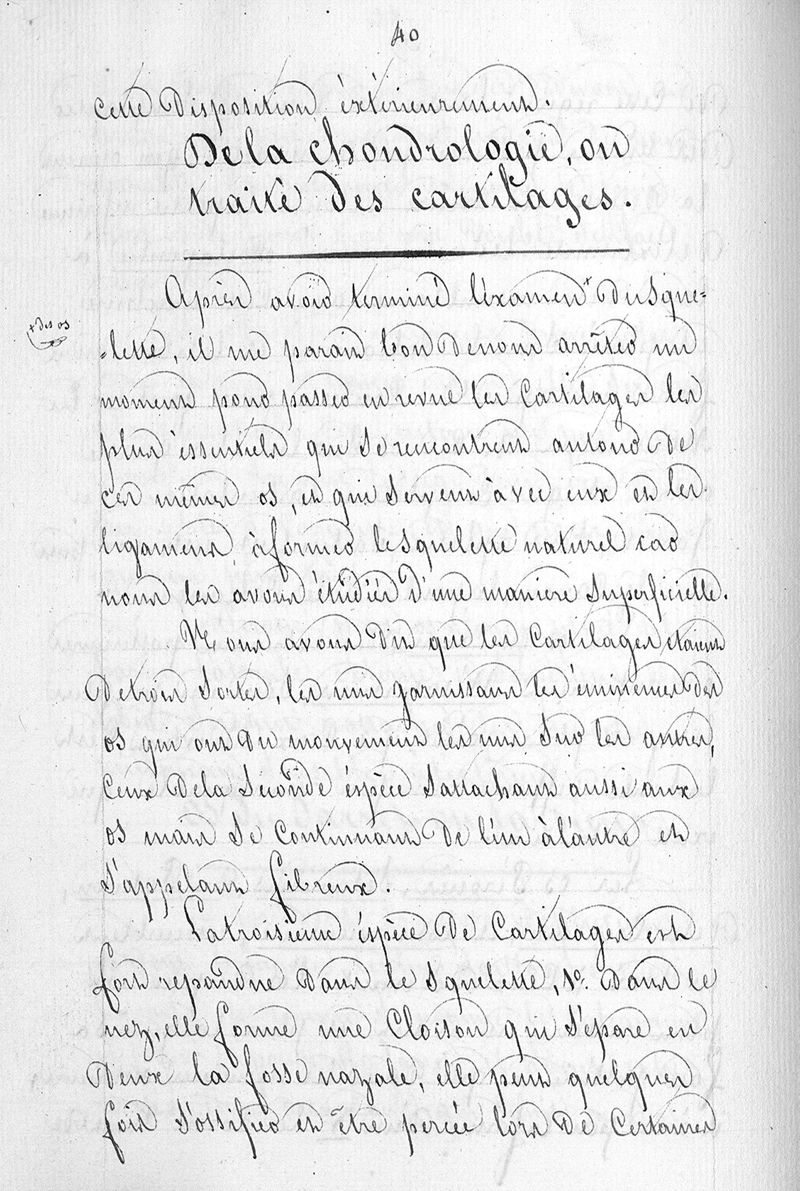 40
cette Disposition éxtérieurement.
De la chondrologie, ou
traité des cartilages.
Après avoir terminé l'éxamen Du sque-
+ des os
-lette, il me parait bon De nous arrêter un
moment pour passer en revue les Cartilages les
plus éssentiels qui se rencontrent autour De
ces mêmes os, et qui servent àvec eux et les
ligaments, a former le squelette naturel car
nous les avons étudiér D'une maniere Superficielle.
Nous avons Dit que les Cartilages étaient
De trois Sortes, les uns garnissant les éminences des
os qui ont Du mouvement les uns Sur les autres,
Ceux De la Seconde éspèce S'attachant aussi aux
os mais Se Continuant De l'un à l'autre et
S'appelant fibreux.
La troisieme éspèce De Cartilages est
fort repandue Dans le Squelette, 1º. Dans le
nez, elle forme une Cloison qui S'épare en
Deux la fosse nazale, elle peut quelques
fois S'ossifier et être percée lors De Certaines